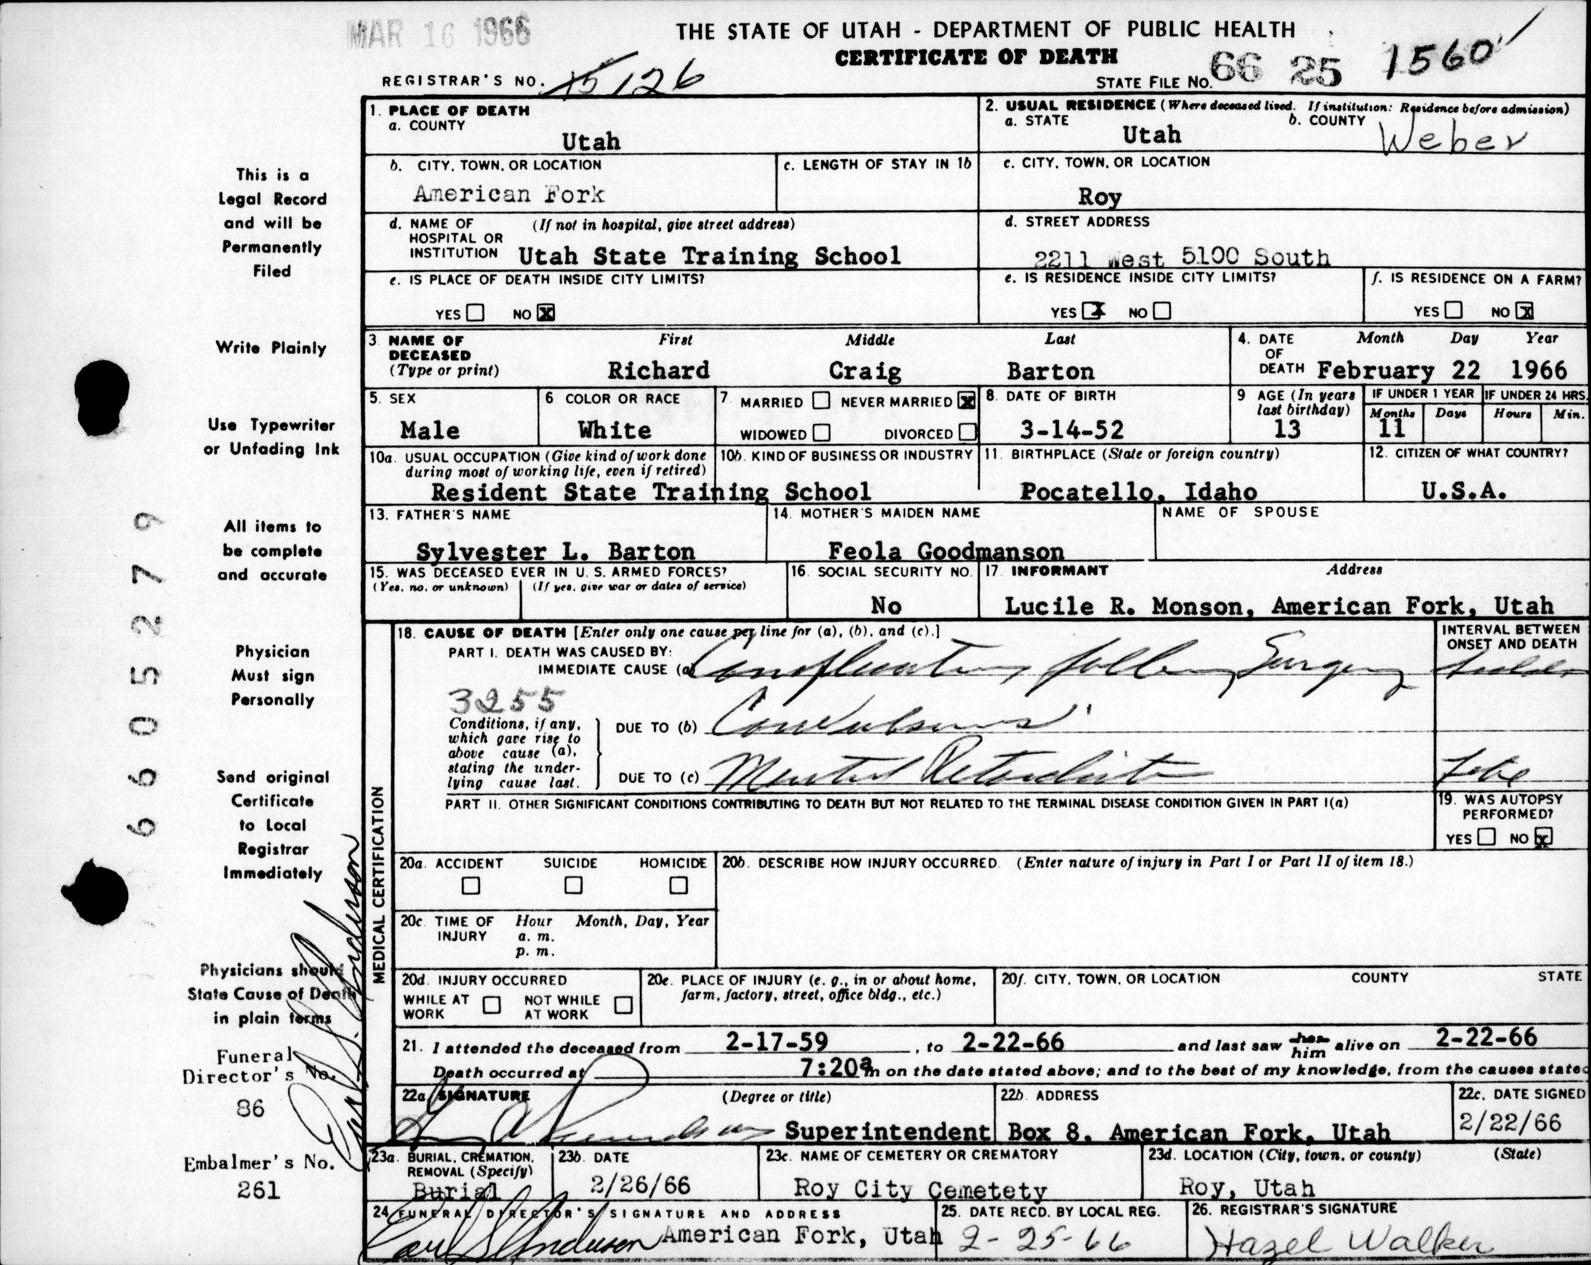 MAR 16 1966
THE STATE OF UTAH - DEPARTMENT OF PUBLIC HEALTH
CERTIFICATE OF DEATH
REGISTRAR'S NO. 126
STATE FILE NO. 66 25 1560
This is a
Legal Record
and will be
Permanently
Filed
Write Plainly
Use Typewriter
or Unfading Ink
All items to
be complete
and accurate
Physician
Must sign
Personally
Send original
Certificate
to Local
Registrar
Immediately
Physicians should
State Cause of Death
in plain terms
Funeral
Director's No.
86
Embalmer's No.
261
6605279
Earl S. Anderson
1. PLACE OF DEATH
a. COUNTY
Utah
2. USUAL RESIDENCE (Where deceased lived. If institution: Residence before admission)
a. STATE
Utah
b. COUNTY
Weber
b. CITY, TOWN, OR LOCATION
American Fork
c. LENGTH OF STAY IN 1b
c. CITY, TOWN, OR LOCATION
Roy
d. NAME OF HOSPITAL OR INSTITUTION (If not in hospital, give street address)
Utah State Training School
d. STREET ADDRESS
2211 West 5100 South
e. IS PLACE OF DEATH INSIDE CITY LIMITS?
YES NO X
e. IS RESIDENCE INSIDE CITY LIMITS?
YES X NO
f. IS RESIDENCE ON A FARM?
YES NO X
3. NAME OF DECEASED (Type or print)
First Middle Last
Richard Craig Barton
4. DATE OF DEATH
Month Day Year
February 22 1966
5. SEX
Male
6 COLOR OR RACE
White
7 MARRIED NEVER MARRIED X
WIDOWED DIVORCED
8. DATE OF BIRTH
3-14-52
9 AGE (In years last birthday)
13
IF UNDER 1 YEAR
Months Days
11
IF UNDER 24 HRS.
Hours Min.
10a. USUAL OCCUPATION (Give kind of work done during most of working life, even if retired)
10b. KIND OF BUSINESS OR INDUSTRY
Resident State Training School
11. BIRTHPLACE (State or foreign country)
Pocatello, Idaho
12. CITIZEN OF WHAT COUNTRY?
U.S.A.
13. FATHER'S NAME
Sylvester L. Barton
14. MOTHER'S MAIDEN NAME
Feola Goodmanson
NAME OF SPOUSE
15. WAS DECEASED EVER IN U. S. ARMED FORCES?
(Yes, no, or unknown) (If yes, give war or dates of service)
16. SOCIAL SECURITY NO.
No
17. INFORMANT Address
Lucile R. Monson, American Fork, Utah
MEDICAL CERTIFICATION
18. CAUSE OF DEATH [Enter only one cause per line for (a), (b), and (c).]
INTERVAL BETWEEN ONSET AND DEATH
PART I. DEATH WAS CAUSED BY:
IMMEDIATE CAUSE (a) Complications following Surgery
3255
Conditions, if any, which gave rise to above cause (a), stating the underlying cause last.
DUE TO (b) Convulsions
DUE TO (c) Mental Retardation
PART II. OTHER SIGNIFICANT CONDITIONS CONTRIBUTING TO DEATH BUT NOT RELATED TO THE TERMINAL DISEASE CONDITION GIVEN IN PART I(a)
19. WAS AUTOPSY PERFORMED?
YES NO X
20a. ACCIDENT SUICIDE HOMICIDE
20b. DESCRIBE HOW INJURY OCCURRED. (Enter nature of injury in Part I or Part II of item 18.)
20c. TIME OF INJURY Hour Month, Day, Year
a. m.
p. m.
20d. INJURY OCCURRED
WHILE AT WORK NOT WHILE AT WORK
20e. PLACE OF INJURY (e. g., in or about home, farm, factory, street, office bldg., etc.)
20f. CITY, TOWN, OR LOCATION COUNTY STATE
21. I attended the deceased from 2-17-59, to 2-22-66 and last saw her him alive on 2-22-66
Death occurred at 7:20a m on the date stated above; and to the best of my knowledge, from the causes stated
22a. SIGNATURE (Degree or title)
Superintendent
22b. ADDRESS
Box 8, American Fork, Utah
22c. DATE SIGNED
2/22/66
23a. BURIAL, CREMATION, REMOVAL (Specify)
Burial
23b. DATE
2/26/66
23c. NAME OF CEMETERY OR CREMATORY
Roy City Cemetety
23d. LOCATION (City, town, or county) (State)
Roy, Utah
24. FUNERAL DIRECTOR'S SIGNATURE AND ADDRESS
Earl S Anderson American Fork, Utah
25. DATE RECD. BY LOCAL REG.
2-25-66
26. REGISTRAR'S SIGNATURE
Hazel Walker